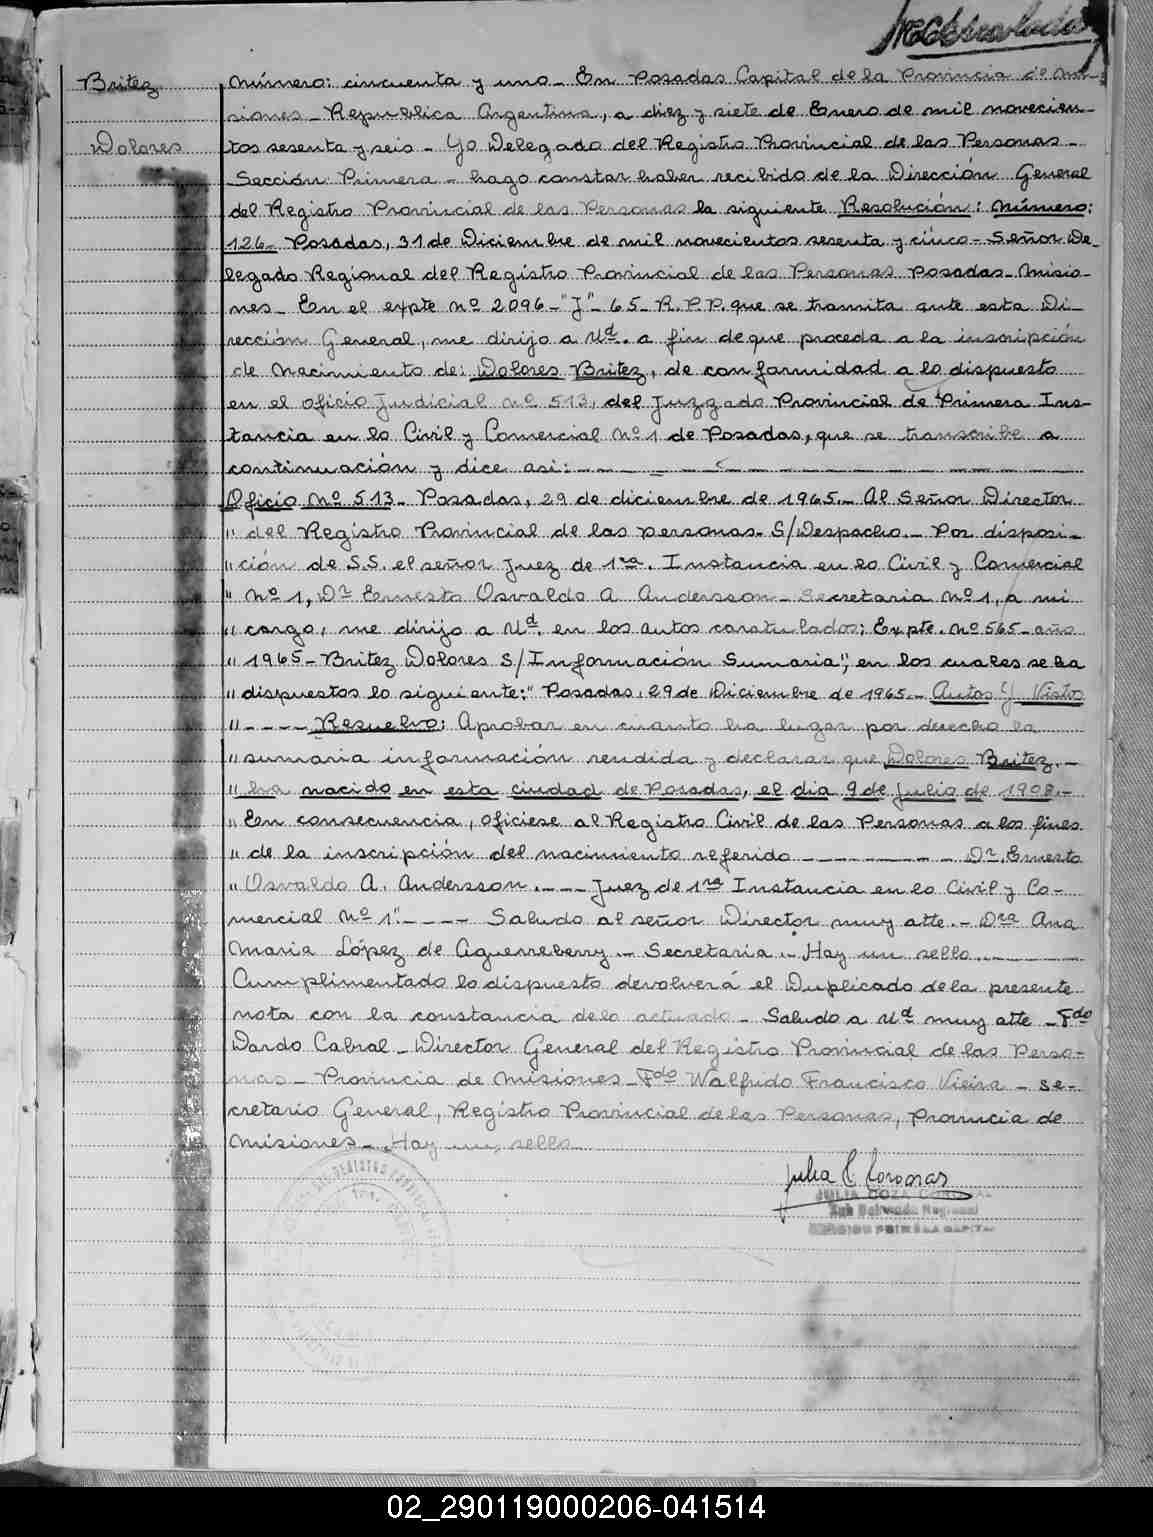 Britez
Dolores
Número: cincuenta y uno_ En Posadas Capital de la Provincia de Mi-
siones_ Republica Argentina, a diez y siete de Enero de mil novecien-
tos sesenta y seis_ Yo Delegado del Registro Provincial de las Personas_
Sección Primera_ hago constar haber recibido de la Dirección General
del Registro Provincial de las Personas la siguiente Resolución: Número:
126_ Posadas, 31 de Diciembre de mil novecientos sesenta y cinco- Señor De-
legado Regional del Registro Provincial de las Personas Posadas_ Misio-
nes_ En el expte Nº 2096-"J"- 65_ R.P.P. que se tramita ante esta Di-
rección General, me dirijo a Ud. a fin de que proceda a la inscripción
de Nacimiento de: Dolores Britez, de conformidad a lo dispuesto
en el oficio Judicial Nº 513, del Juzgado Provincial de Primera Ins-
tancia en lo Civil y Comercial Nº 1 de Posadas, que se transcribe a
continuación y dice asi:_ _ _ _ _ _ _ _ _ _ _ _
Oficio Nº 513_ Posadas, 29 de diciembre de 1965._ Al Señor Director
" del Registro Provincial de las personas_ S/Despacho._ Por disposi-
" ción de S.S. el señor Juez de 1ra. Instancia en lo Civil y Comercial
" Nº 1, Dr Ernesto Osvaldo A Andersson_ Secretaria Nº 1, a mi
" cargo, me dirijo a Ud. en los autos caratulados: Expte. Nº 565_ año
" 1965_ Britez Dolores S/Información Sumaria", en los cuales se ha
" dispuestos lo siguiente:" Posadas, 29 de Diciembre de 1965._ Autos Y Vistos
"_ _ _ _ Resuelvo: Aprobar en cuanto ha lugar por derecho la
" sumaria información rendida y declarar que Dolores Britez._
" ha nacido en esta ciudad de Posadas, el dia 9 de Julio de 1908._
" En consecuencia, oficiese al Registro Civil de las Personas a los fines
" de la inscripción del nacimiento referido _ _ _ _ _ _ _ Dr. Ernesto
" Osvaldo A. Andersson._ _ _ Juez de 1ra Instancia en lo Civil y Co-
mercial Nº 1"._ _ _ _ Saludo al señor Director muy atte._ Dra Ana
Maria López de Aguerreberry_ Secretaria_ Hay un sello._ _ _ _
Cumplimentado lo dispuesto devolverá el Duplicado de la presente
nota con la constancia de lo actuado_ Saludo a Ud muy atte_ Fdo
Dardo Cabral_ Director General del Registro Provincial de las Perso-
nas_ Provincia de Misiones_ Fdo Walfrido Francisco Vieira_ Se-
cretario General, Registro Provincial de las Personas, Provincia de
Misiones_ Hay un sello
JULIA
Sub Delegado Regional
SECCION PRIMERA CAPITAL
02_290119000206-041514